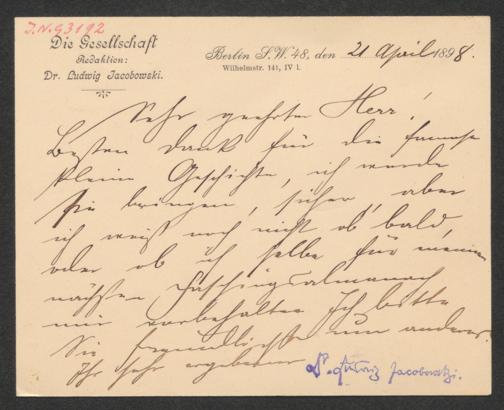 J.N. 93192
Die Gesellschaft
Redaktion:
Dr. Ludwig Jacobowski.
Berlin S.W. 48, den 21 April 1898.
Wilhelmstr. 141, IV l.
Sehr geehrter Herr!
Besten Dank für die famose
kleine Geschichte, ich werde
sie bringen, sicher, aber
ich weiß noch nicht ob bald,
oder ob ich selbe für meinen
nächsten Faschingsalmanach
mir vorbehalte. Ich bitte
Sie freundlichst um anderes.
Ihr sehr ergebener
Dr. Ludwig Jacobowski.